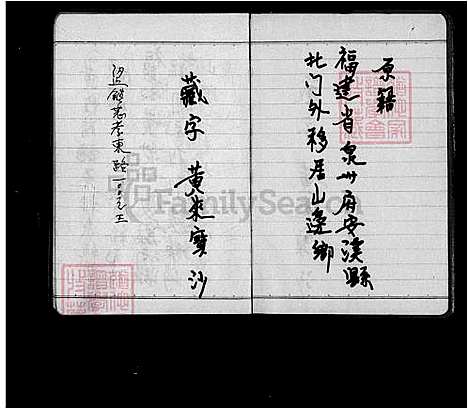 原籍
福建省泉州府安溪縣
北门外移居山邊鄉
藏字 黄来寶 沙
忠孝東路
FamilySearch